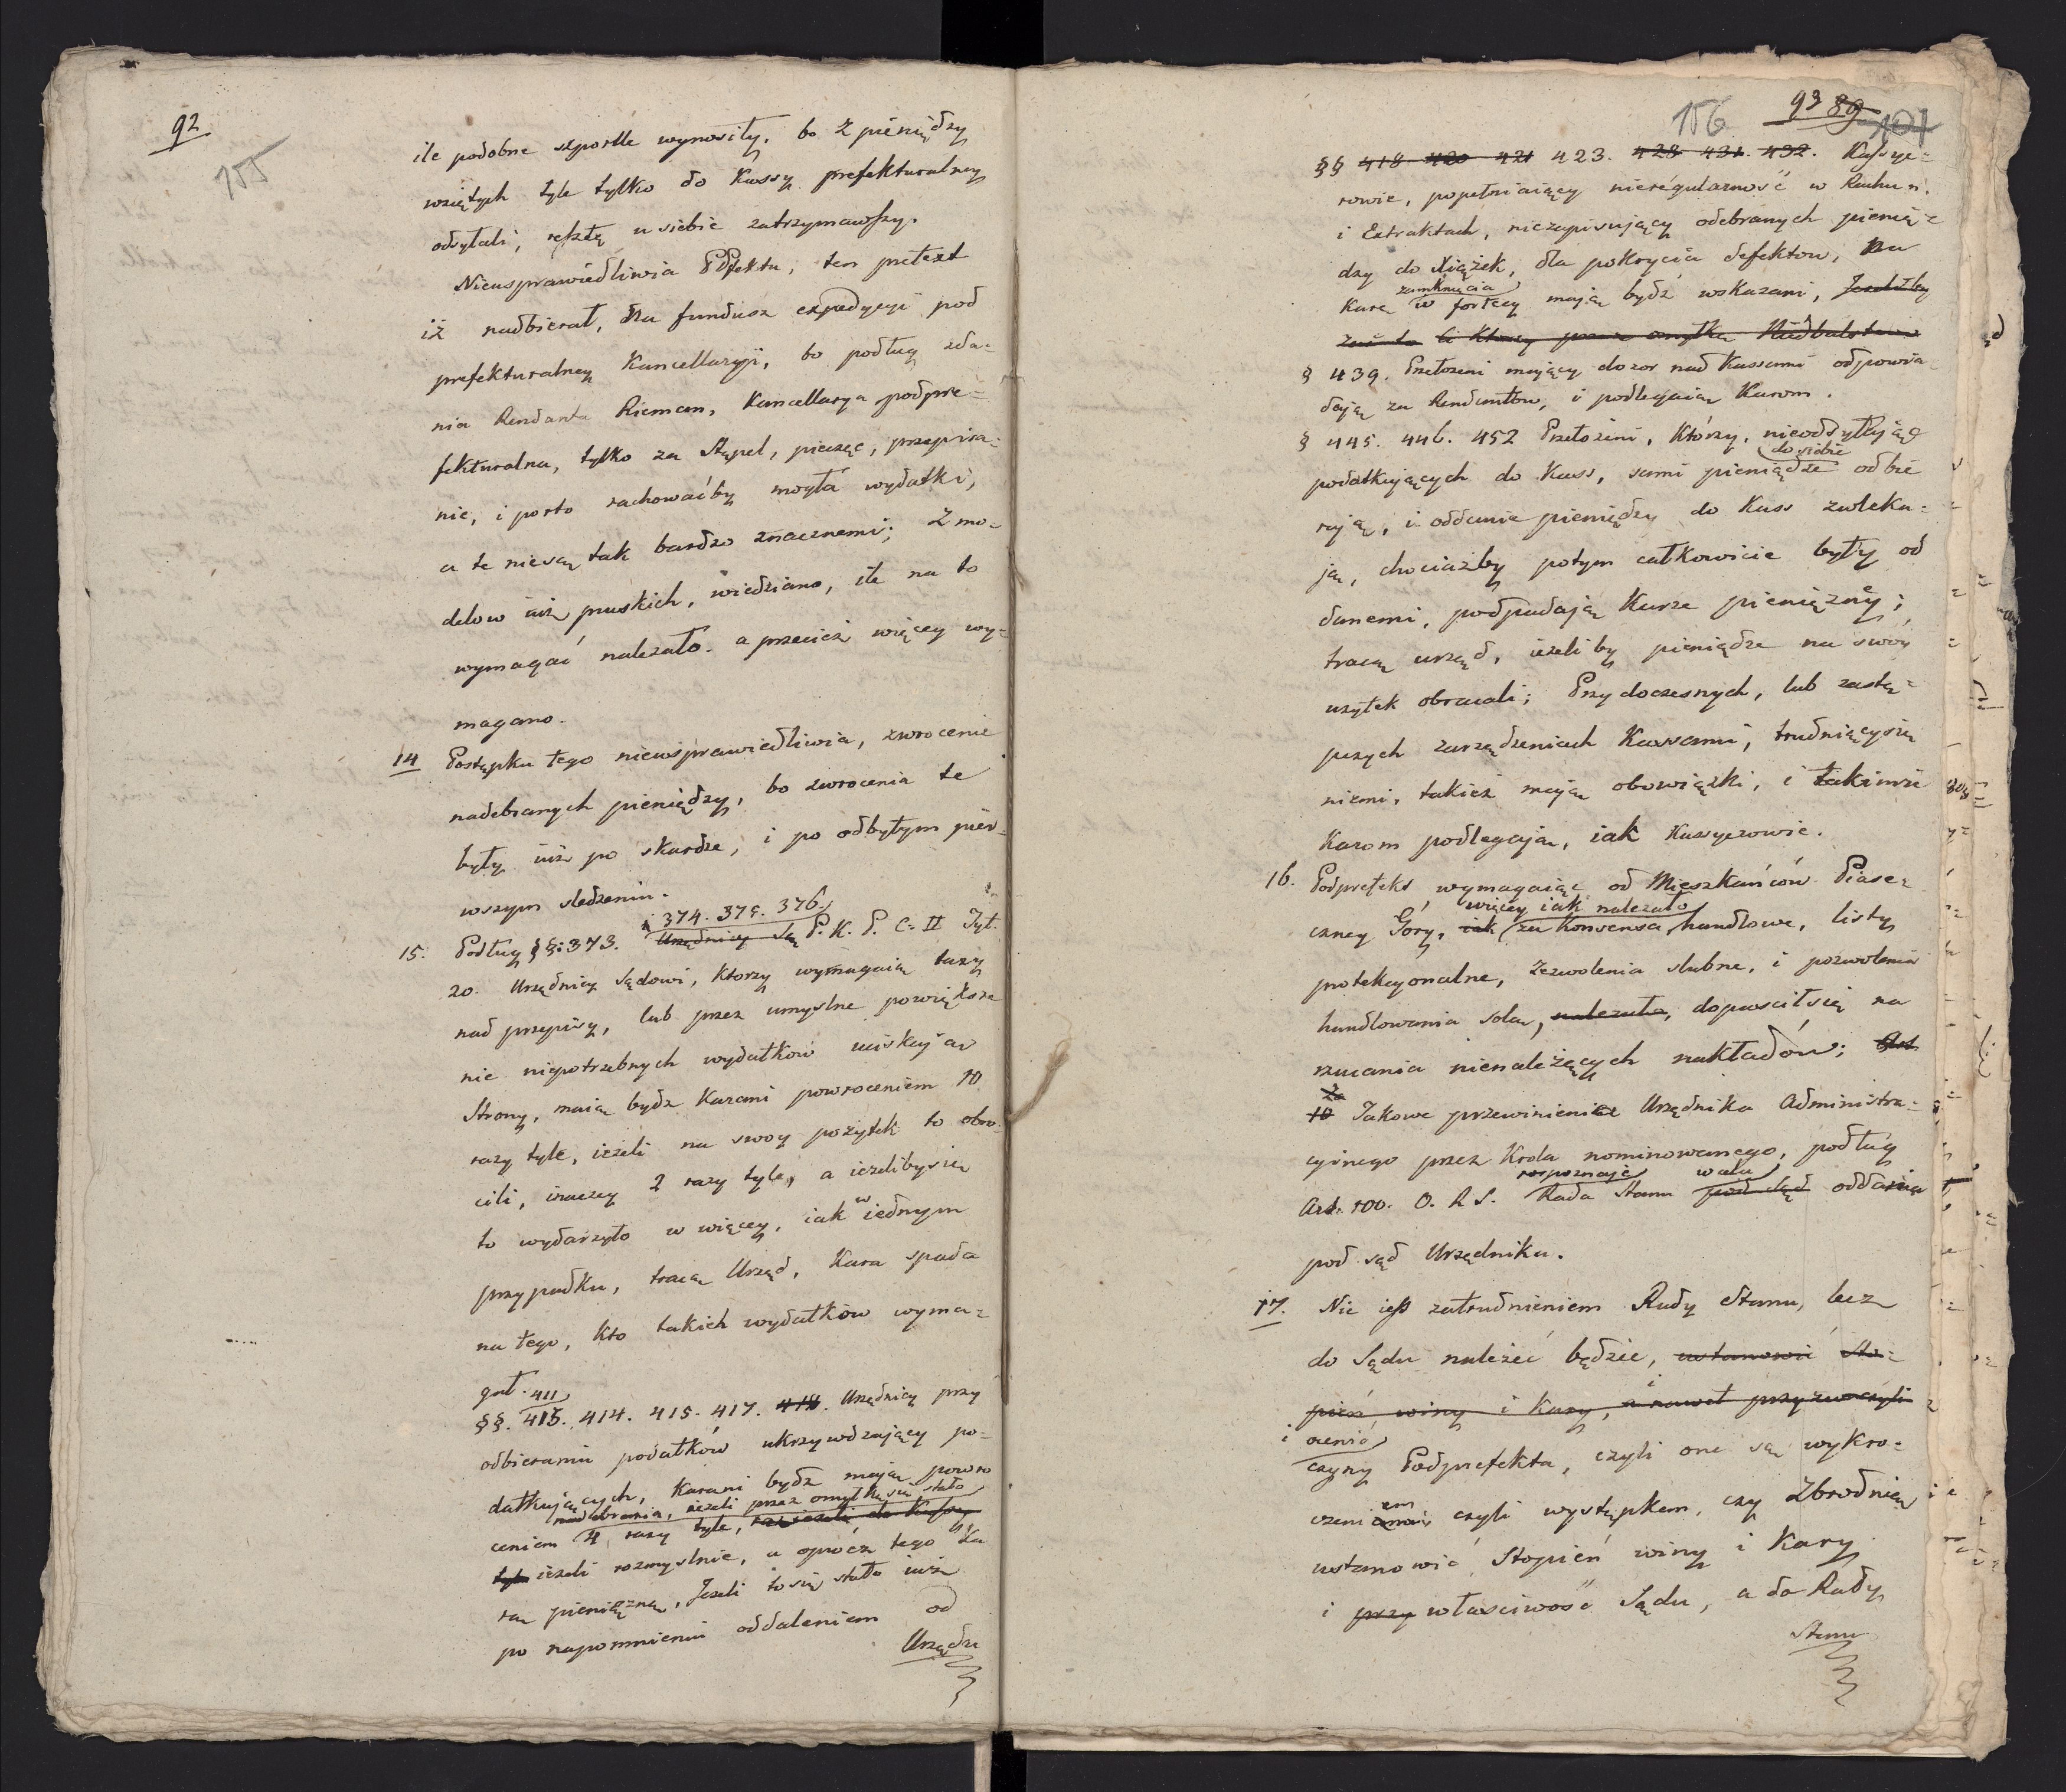 92
155
ile podobne szportle wynosiły. bo z pieniędzy
wziętych tyle tylko do Kassy prefekturalney
odsyłali, resztę u siebie zatrzymawszy.
Nieusprawiedliwia PPfekta, ten pretext
iż nadbierał, na fundusz expedycyi pod
prefekturalney Kancellaryi, bo podług zda=
nia Rendanta Rieman, Kancellarya podpre=
fekturalna, tylko za Stępel, pieczęc, przepisa=
nie, i porto rachowaćby mogła wydatki,
a te niesą tak bardzo znacznemi; z mo=
delow iuż pruskich, wiedziano, ile na to
wymagać należało. a przecież więcey wy=
magano.
14 Postępku tego nieusprawiedliwia, zwrocenie
nadebranych pieniędzy, bo zwrocenia te
były iuż po skardze, i po odbytym pier=
wszym śledzeniu.
i 374. 375. 376.
15. Podług §§: 373. Urzędnicy są P. K. P. C. II Tyt.
20. Urzędnicy Sądowi, ktorzy wymagaią taxy
nad przepisy, lub przez umyslne powiększe
nie niepotrzebnych wydatkow uciskaią
Strony, maią bydz Karani powroceniem 10
razy tyle, ieżeli na swoy pożytek to obro=
cili, inaczey 2 razy tyle, a ieżelibysię
to wydarzyło w więcey, iak w iednym
przypadku, tracą Urząd, Kara spada
na tego, Kto takich wydatków wyma=
gał.
411
§§. 413. 414. 415. 417. 418. Urzędnicy przy
odbieraniu podatków ukrzywdzaiący po=
datkuiących, Karani bydz maią powro
nadebrania, ieżeli przez omyłkę się stało
ceniem 4 razy tyle, do Kassy
tyle ieżeli rozmyslnie, a oprócz tego Ka
rą pieniężną, Jeżeli tosię stało iuż
po napomnieniu oddaleniem od
Urzędu
156 93 89 101
§§ 418. 420 421 423. 428 431. 432. Kassye=
rowie, popełniaiący nieregularność w Rachun.
i Extraktach, niezapisuiący odebranych pienię=
dzy do Xiążek, dla pokrycia defektow, na
zamknięcia
Karę w fortecy maią bydź wskazani, Jeżeliby
zaś to Ci Ktorzy przez omyłkę Niedbalstwo
§ 439. Przełożeni maiący dozor nad Kassami odpowia
daią za Rendantow, i podlegaią Karom.
§ 445. 446. 452 Przełożeni, Którzy, nieodsyłaiąc
do siebie
podatkuiących do Kass, sami pieniądze odbie
raią, i oddanie pieniędzy do Kass zwleka=
ią, chociażby potym całkowicie były od
danemi, podpadaią Karze pieniężney;
tracą urząd, ieżeliby pieniądze na swoy
użytek obracali; Przy doczesnych, lub zastę=
pczych zarządzeniach Kassami, trudniącysię
niemi, takież maią obowiązki, i takimże
Karom podlegaią, iak Kassyerowie.
16. Podprefekt, wymagaiąc od Mieszkańców Piase=
więcey iak należało
czney Góry, iak za Konsensa handlowe, listy
protekcyonalne, zezwolenia slubne, i pozwolenia
handlowania solą, należało, dopuscił się na
rzucania nienależących nakładów; Art
Za
10 Takowe przewinienie Urzędnika Administra=
cyinego przez Krola nominowanego, podług
rozpoznaie wału
Art. 100. O. R S. Rada Stanu pod Sąd oddania
pod sąd Urzędnika.
17. Nie iest zatrudnieniem Rady Stanu, lecz
do Sądu należeć będzie, ustanowić sto=
pień, winy i Kary, a nawet przyzwoczyli
i ocenić
czyny Podprefekta, czyli one są wykro=
em
czeniami czyli występkem, czy Zbrodnią
ustanowić Stopień winy i Kary
i przy własciwość Sądu, a do Rady
Stanu